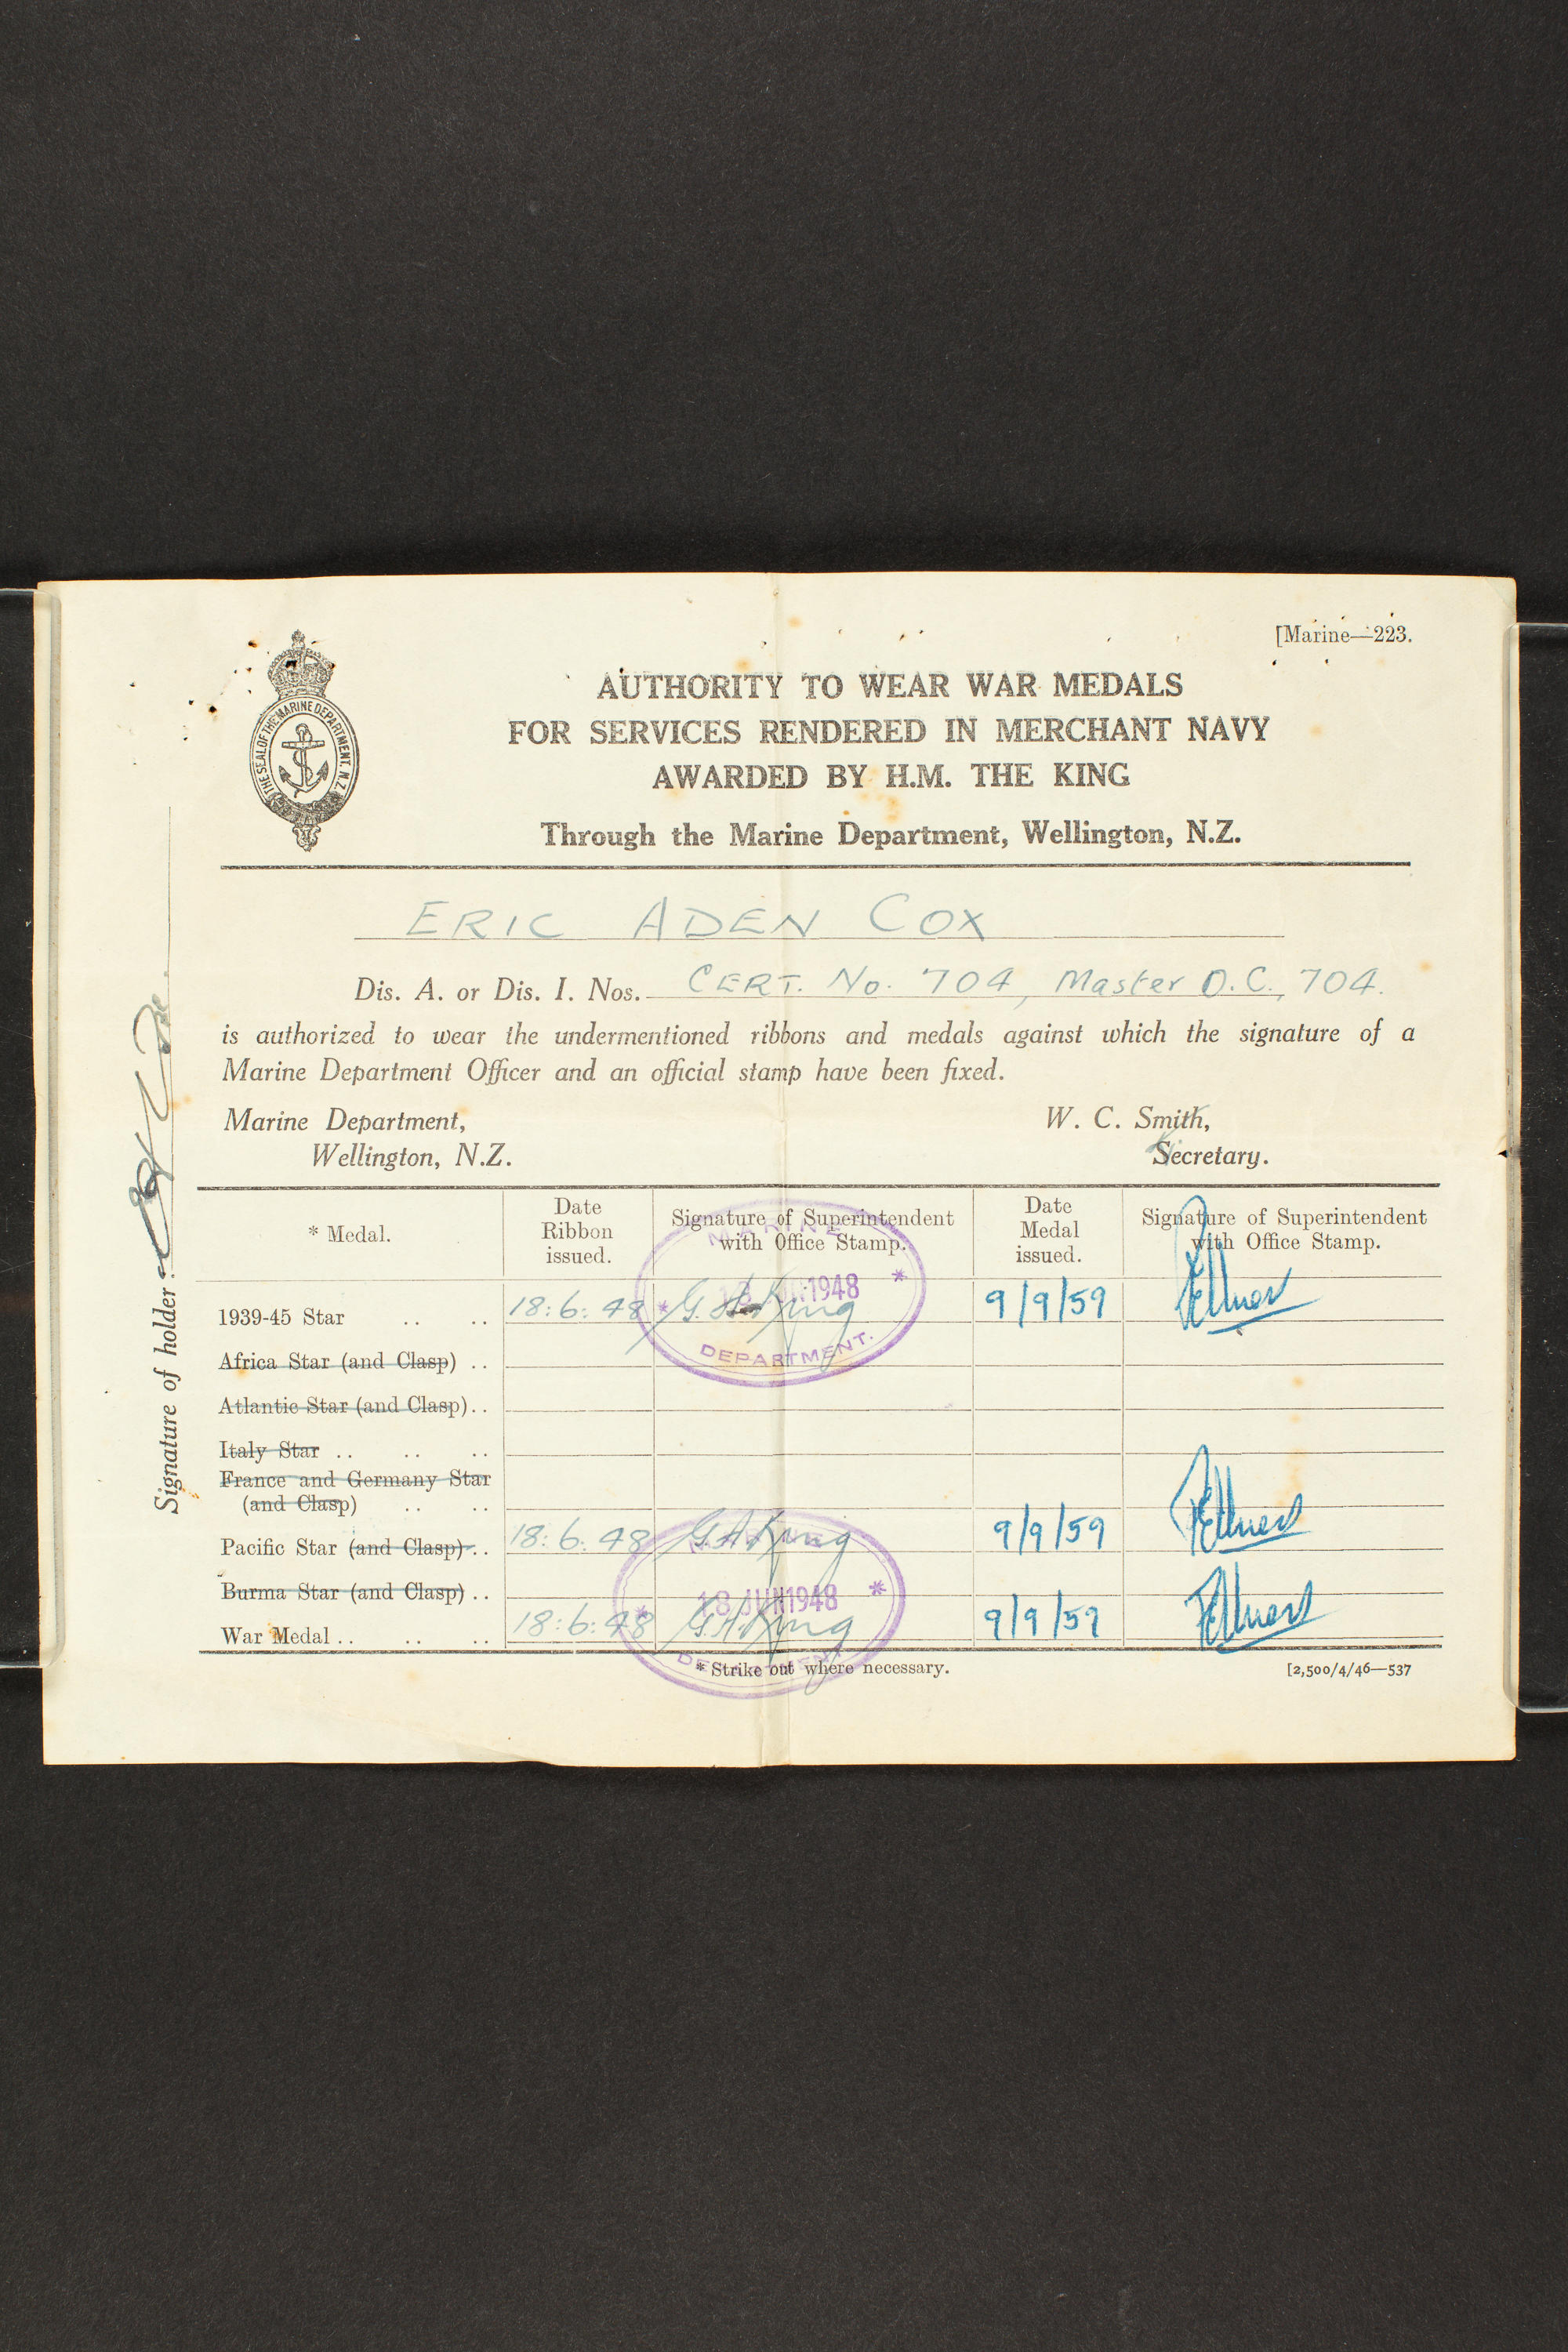 [Marine—223.
THE SEAL OF THE MARINE DEPARTMENT, N.Z.
AUTHORITY TO WEAR WAR MEDALS
FOR SERVICES RENDERED IN MERCHANT NAVY
AWARDED BY H.M. THE KING
Through the Marine Department, Wellington, N.Z.
ERIC ADEN COX
Dis. A. or Dis. I. Nos. CERT. No. 704, Master O.C., 704.
is authorized to wear the undermentioned ribbons and medals against which the signature of a
Marine Department Officer and an official stamp have been fixed.
Marine Department, W. C. Smith,
Wellington, N.Z. Secretary.
Signature of holder:
* Medal. Date Ribbon issued. Signature of Superintendent with Office Stamp. Date Medal issued. Signature of Superintendent with Office Stamp.
1939-45 Star .. .. 18:6:48 G.A.King 9/9/59
MARINE 1948 DEPARTMENT.
Africa Star (and Clasp) ..
Atlantic Star (and Clasp)..
Italy Star .. .. ..
France and Germany Star
(and Clasp) .. ..
Pacific Star (and Clasp).. 18:6:48 G.A.King 9/9/59
Burma Star (and Clasp) ..
18 JUN 1948
War Medal .. .. .. 18:6:48 G.A.King 9/9/59
DEPARTMENT
* Strike out where necessary. [2,500/4/46—537